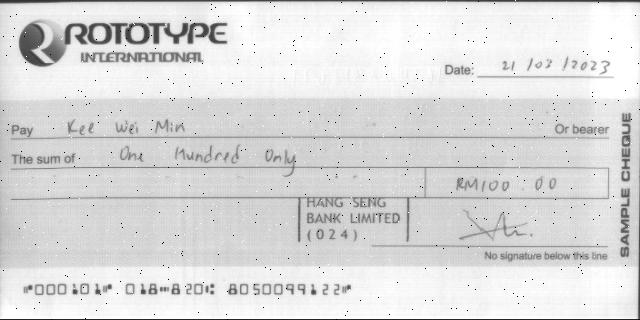 ROTOTYPE
INTERNATIONAL
Date: 21/02/2023
Pay Kee Wei Min Or bearer
The sum of One Hundred Only
RM100.00
HANG SENG
BANK LIMITED
(024)
No signature below this line
SAMPLE CHEQUE
⑈000101⑈ 018⑉820⑆ 8050099122⑈